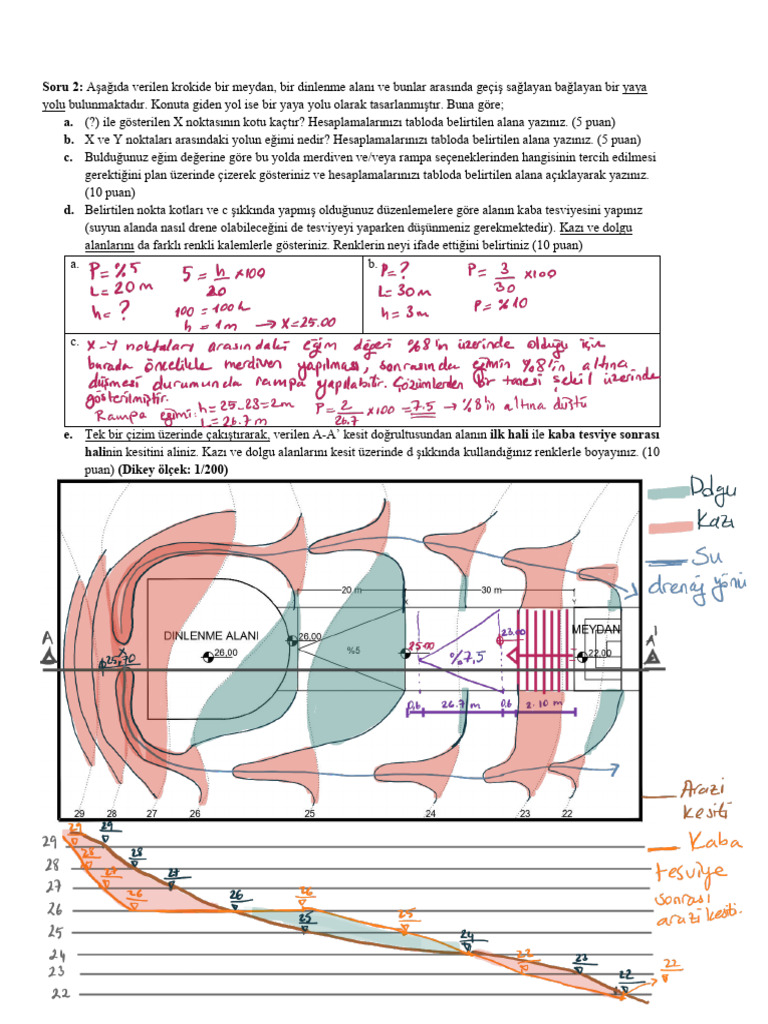 Soru 2: Aşağıda verilen krokide bir meydan, bir dinlenme alanı ve bunlar arasında geçiş sağlayan bağlayan bir yaya
yolu bulunmaktadır. Konuta giden yol ise bir yaya yolu olarak tasarlanmıştır. Buna göre;
a. (?) ile gösterilen X noktasının kotu kaçtır? Hesaplamalarınızı tabloda belirtilen alana yazınız. (5 puan)
b. X ve Y noktaları arasındaki yolun eğimi nedir? Hesaplamalarınızı tabloda belirtilen alana yazınız. (5 puan)
c. Bulduğunuz eğim değerine göre bu yolda merdiven ve/veya rampa seçeneklerinden hangisinin tercih edilmesi
gerektiğini plan üzerinde çizerek gösteriniz ve hesaplamalarınızı tabloda belirtilen alana açıklayarak yazınız.
(10 puan)
d. Belirtilen nokta kotları ve c şıkkında yapmış olduğunuz düzenlemelere göre alanın kaba tesviyesini yapınız
(suyun alanda nasıl drene olabileceğini de tesviyeyi yaparken düşünmeniz gerekmektedir). Kazı ve dolgu
alanlarını da farklı renkli kalemlerle gösteriniz. Renklerin neyi ifade ettiğini belirtiniz (10 puan)
a. b.
P = %5 5 = h/20 x100 P = ? P = 3/30 x100
L = 20 m L = 30 m
h = ? 100 = 100h h = 3m P = %10
h = 1m → X = 25.00
c. X-Y noktaları arasındaki eğim değeri %8'in üzerinde olduğu için
burada öncelikle merdiven yapılması, sonrasında eğimin %8'in altına
düşmesi durumunda rampa yapılabilir. Çözümlerden bir tanesi şekil üzerinde
gösterilmiştir.
Rampa eğimi: h = 25-23 = 2m P = 2/26.7 x100 = 7.5 → %8'in altına düştü
L = 26.7 m
e. Tek bir çizim üzerinde çakıştırarak, verilen A-A' kesit doğrultusundan alanın ilk hali ile kaba tesviye sonrası
halinin kesitini aliniz. Kazı ve dolgu alanlarını kesit üzerinde d şıkkında kullandığınız renklerle boyayınız. (10
puan) (Dikey ölçek: 1/200)
Dolgu
Kazı
Su
drenaj yönü
20 m 30 m
X Y
DINLENME ALANI 26.00 23.00 MEYDAN
A A'
26,00 %5 25.00 %7,5 22.00
25,70
0,6 26.7 m 0,6 2.10 m
29 28 27 26 25 24 23 22
Arazi
kesiti
Kaba
tesviye
sonrası
arazi kesiti.
29 29 29
28 28 28
27 27 27
26 26 26 26
25 25 25
24 24
23 22 23
22 22 22